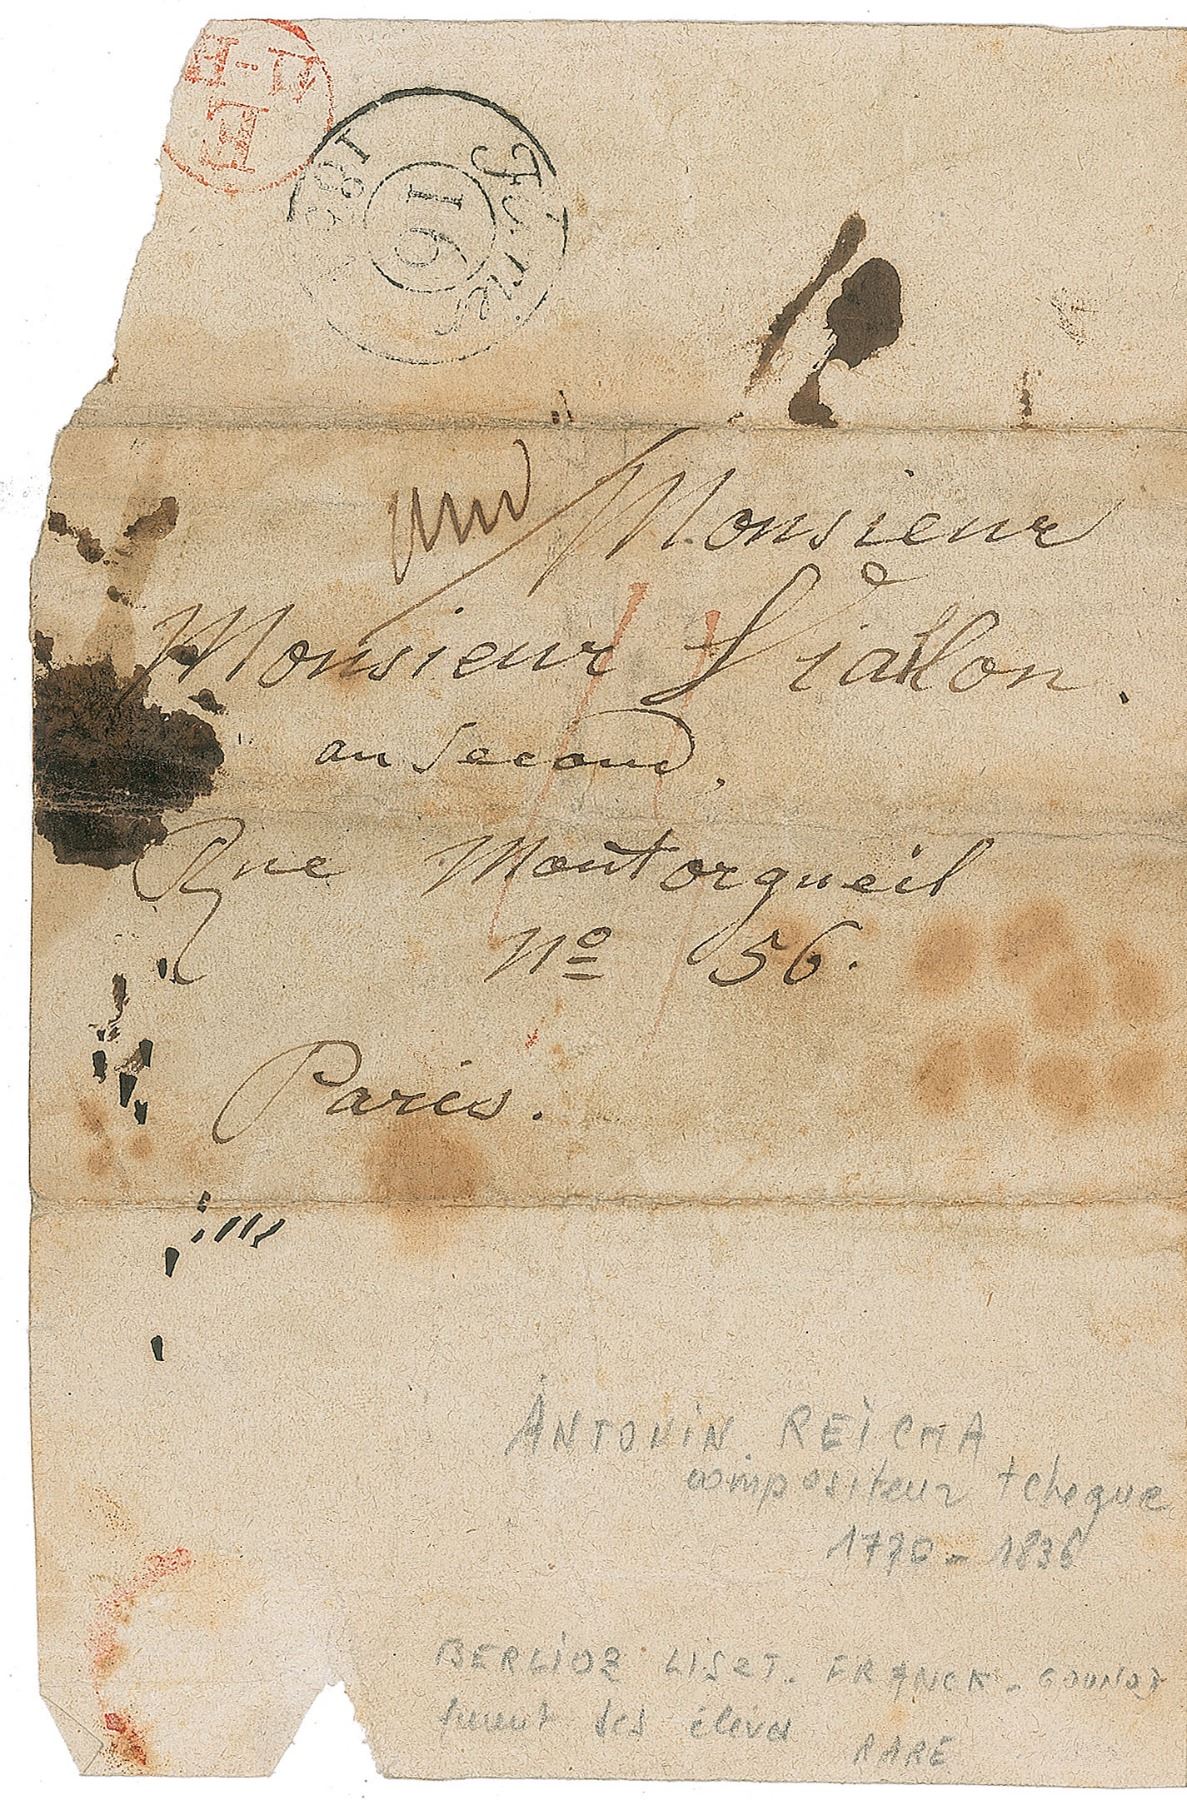 E
Février
16
Monsieur
Monsieur Viallon.
au Second,
Rue Montorgueil
No 56.
Paris.
ANTONIN REICHA
compositeur tcheque
1770 - 1836
BERLIOZ LISZT. FRANCK - GOUNOD
furent ses élèves
RARE